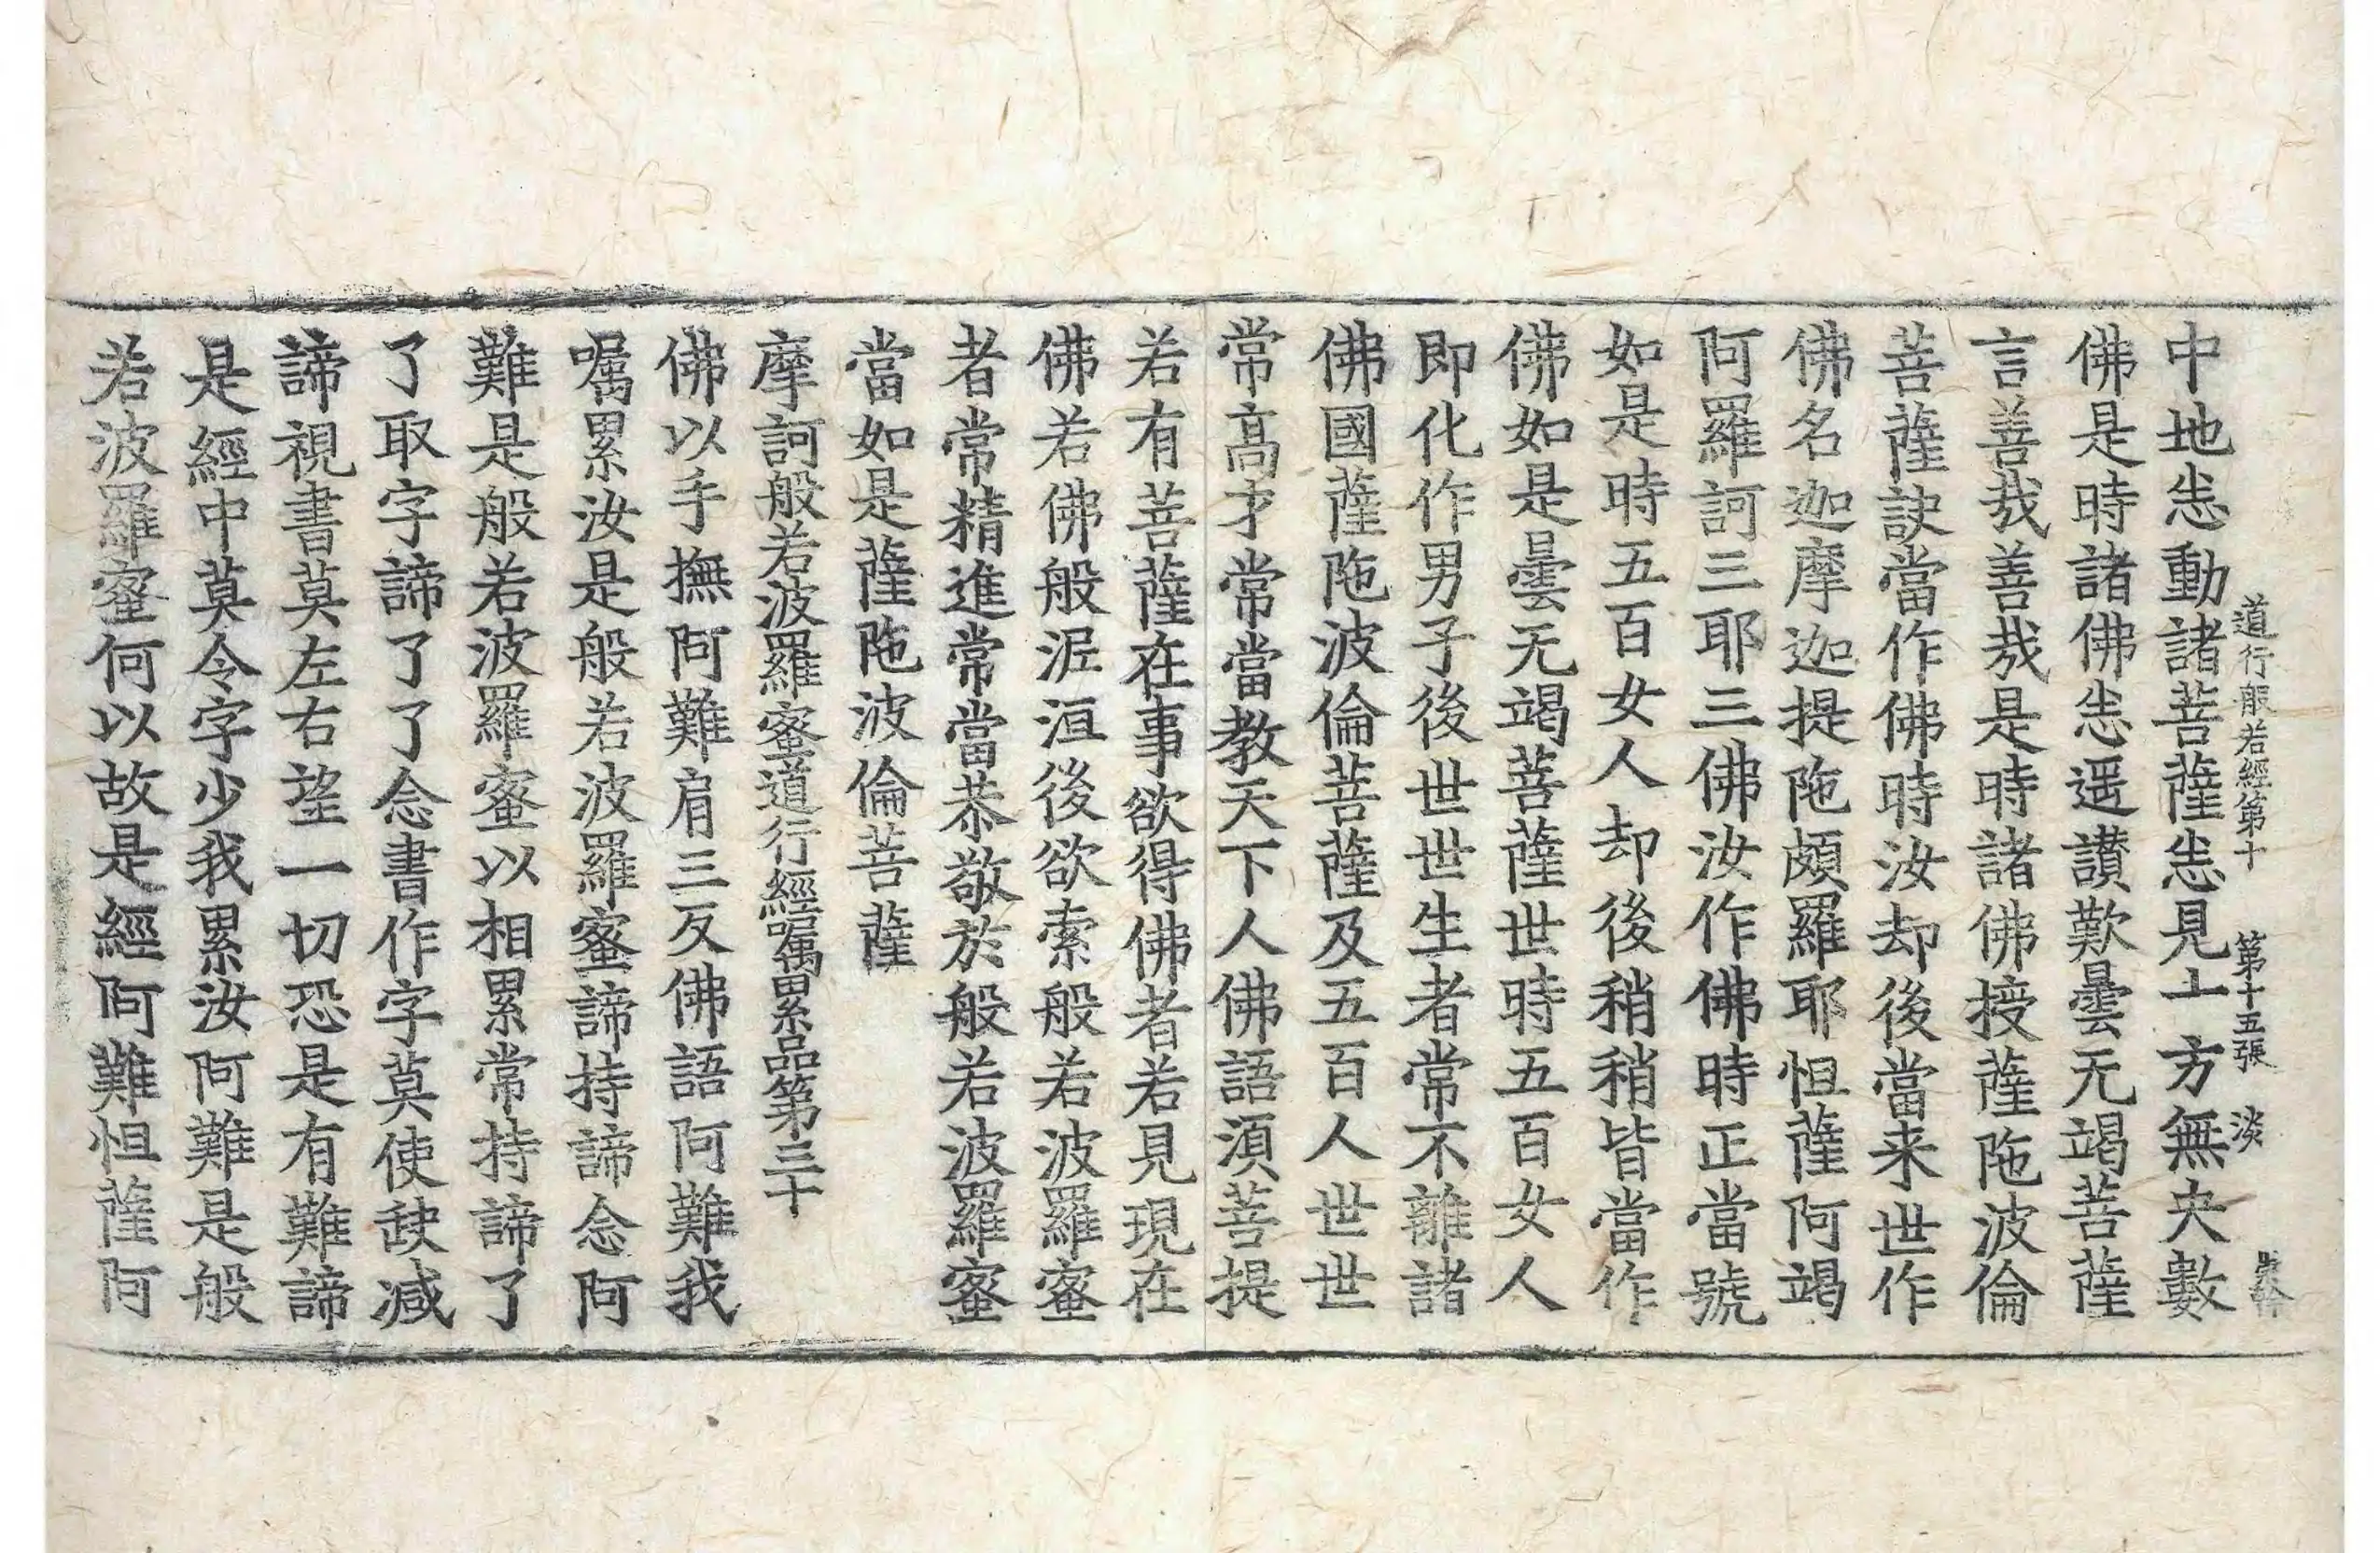 道行般若經第十 第十五張 淡
中地悉動諸菩薩悉見十方無央數
佛是時諸佛悉遥讃歎曇无竭菩薩
言善㢤善㢤是時諸佛授薩陁波倫
菩薩訣當作佛時汝却後當来世作
佛名迦摩迦提陁頗羅耶怛薩阿竭
阿羅訶三耶三佛汝作佛時正當號
如是時五百女人却後稍稍皆當作
佛如是曇无竭菩薩世時五百女人
即化作男子後世世生者常不離諸
佛國薩陁波倫菩薩及五百人世世
常高才常當教天下人佛語湏菩提
若有菩薩在事欲得佛者若見現在
佛若佛般泥洹後欲索般若波羅蜜
者常精進常當恭敬於般若波羅蜜
當如是薩陁波倫菩薩
摩訶般若波羅蜜道行經嘱累品第三十
佛以手撫阿難肩三反佛語阿難我
嘱累汝是般若波羅蜜諦持諦念阿
難是般若波羅蜜以相累常持諦了
了取字諦了了念書作字莫使缺减
諦視書莫左右望一切恐是有難諦
是經中莫令字少我累汝阿難是般
若波羅蜜何以故是經阿難怛薩阿